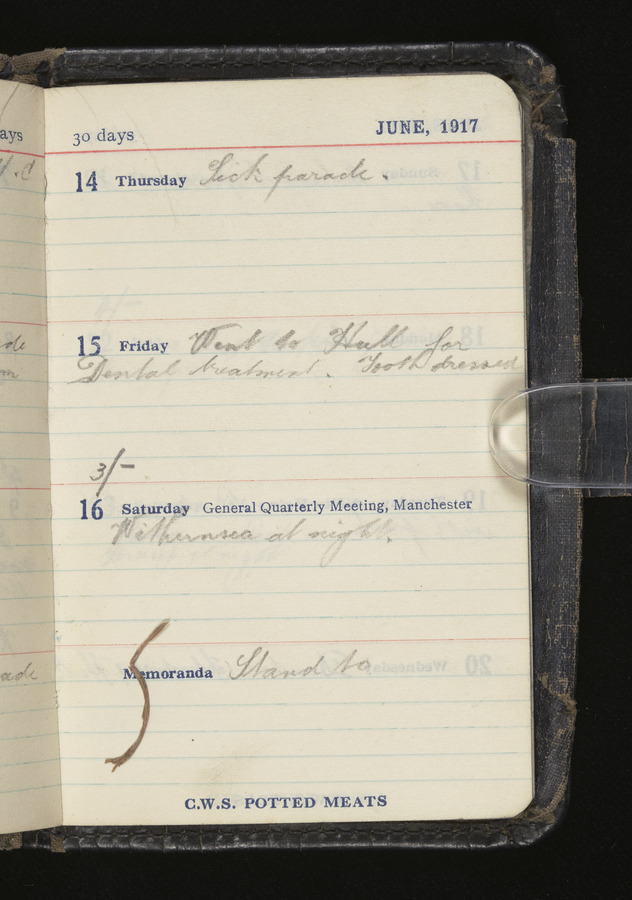 30 days JUNE, 1917
14 Thursday Sick parade.
15 Friday Went to Hull for
Dental treatment. Tooth dressed
3/-
16 Saturday General Quarterly Meeting, Manchester
Withernsea at night.
Memoranda Stand to
C.W.S. POTTED MEATS